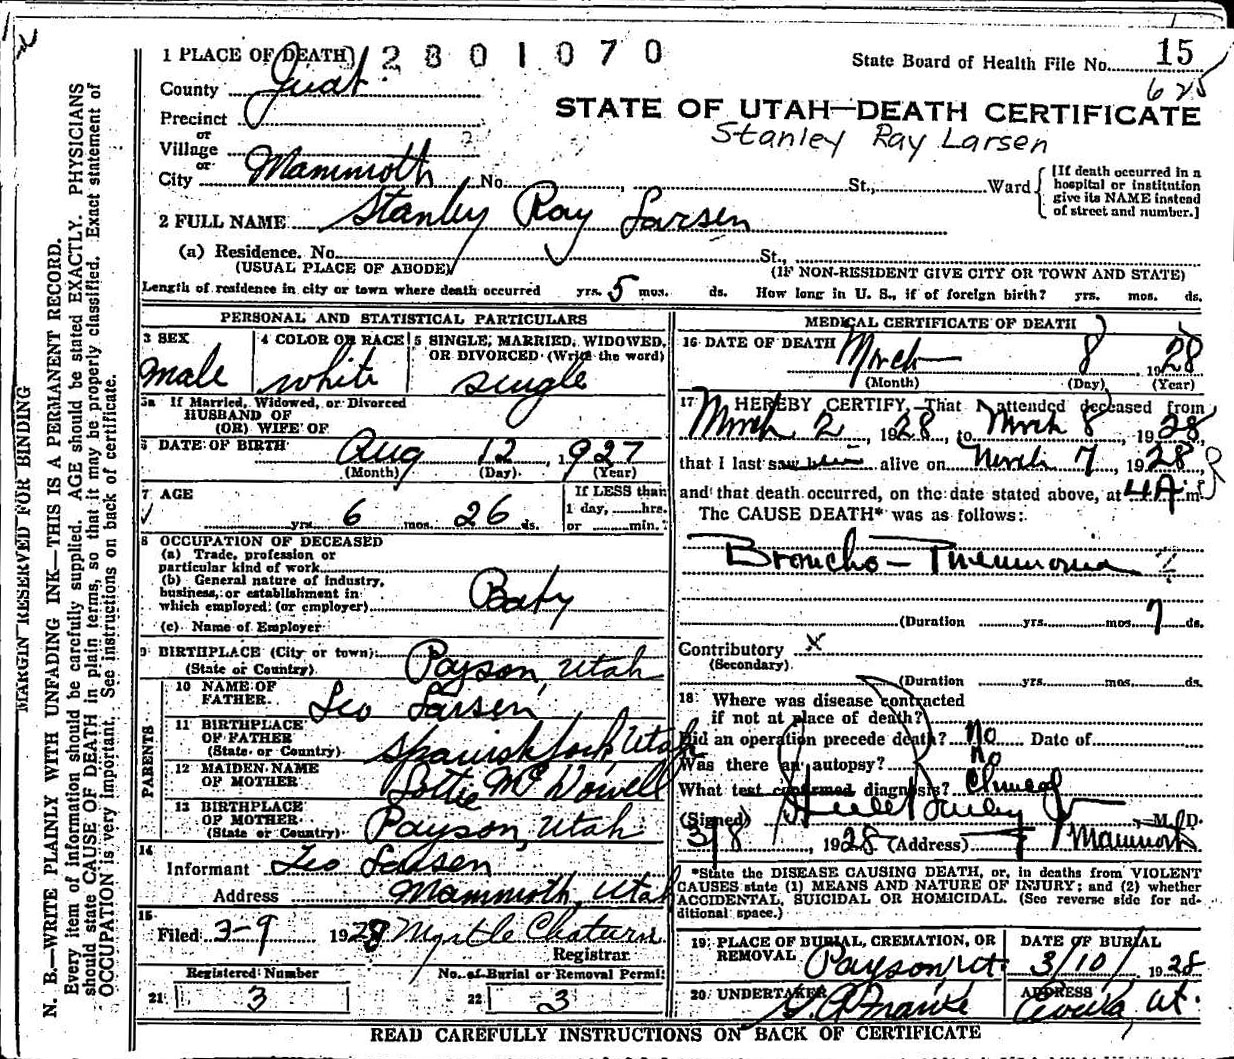 1 PLACE OF DEATH 2801070
State Board of Health File No. 15
625
County Juab
STATE OF UTAH—DEATH CERTIFICATE
Precinct
Stanley Ray Larsen
or
Village
or
City Mammoth No. , St., Ward
[If death occurred in a hospital or institution give its NAME instead of street and number.]
2 FULL NAME Stanley Ray Larsen
(a) Residence. No. St.,
(USUAL PLACE OF ABODE) (IF NON-RESIDENT GIVE CITY OR TOWN AND STATE)
Length of residence in city or town where death occurred yrs. 5 mos. ds. How long in U. S., if of foreign birth? yrs. mos. ds.
PERSONAL AND STATISTICAL PARTICULARS
3 SEX 4 COLOR OR RACE 5 SINGLE, MARRIED, WIDOWED, OR DIVORCED (Write the word)
male white single
5a If Married, Widowed, or Divorced
HUSBAND OF
(OR) WIFE OF
6 DATE OF BIRTH Aug 12, 1927
(Month) (Day) (Year)
7 AGE If LESS than
yrs. 6 mos. 26 ds. 1 day, hrs.
or min.?
8 OCCUPATION OF DECEASED
(a) Trade, profession or
particular kind of work
(b) General nature of industry,
business, or establishment in
which employed (or employer) Baby
(c) Name of Employer
9 BIRTHPLACE (City or town) Payson, Utah
(State or Country)
PARENTS
10 NAME OF
FATHER Leo Larsen
11 BIRTHPLACE
OF FATHER
(State or Country) Spanish Fork Utah
12 MAIDEN NAME
OF MOTHER Lottie McDowell
13 BIRTHPLACE
OF MOTHER
(State or Country) Payson, Utah
14
Informant Leo Larsen
Address Mammoth, Utah
15
Filed 3-9 1928 Myrtle
Registrar.
Registered Number No. of Burial or Removal Permit
21 3 22 3
MEDICAL CERTIFICATE OF DEATH
16 DATE OF DEATH March 8, 1928
(Month) (Day) (Year)
17 I HEREBY CERTIFY, That I attended deceased from
March 2, 1928, to March 8, 1928,
that I last saw him alive on March 7, 1928,
and that death occurred, on the date stated above, at 4 A m
The CAUSE DEATH* was as follows:
Broncho-Pneumonia
(Duration yrs. mos. 7 ds.
Contributory X
(Secondary)
(Duration yrs. mos. ds.
18 Where was disease contracted
if not at place of death?
Did an operation precede death? No Date of
Was there an autopsy? No
What test confirmed diagnosis? Clinical
(Signed) M. D.
3/8, 1928 (Address) Mammoth
*State the DISEASE CAUSING DEATH, or, in deaths from VIOLENT
CAUSES state (1) MEANS AND NATURE OF INJURY; and (2) whether
ACCIDENTAL, SUICIDAL OR HOMICIDAL. (See reverse side for ad-
ditional space.)
19 PLACE OF BURIAL, CREMATION, OR REMOVAL DATE OF BURIAL
Payson, Ut. 3/10/ 1928
20 UNDERTAKER ADDRESS
Eureka, Ut.
READ CAREFULLY INSTRUCTIONS ON BACK OF CERTIFICATE
MARGIN RESERVED FOR BINDING
N. B.—WRITE PLAINLY WITH UNFADING INK—THIS IS A PERMANENT RECORD.
Every item of information should be carefully supplied. AGE should be stated EXACTLY. PHYSICIANS
should state CAUSE OF DEATH in plain terms, so that it may be properly classified. Exact statement of
OCCUPATION is very important. See instructions on back of certificate.